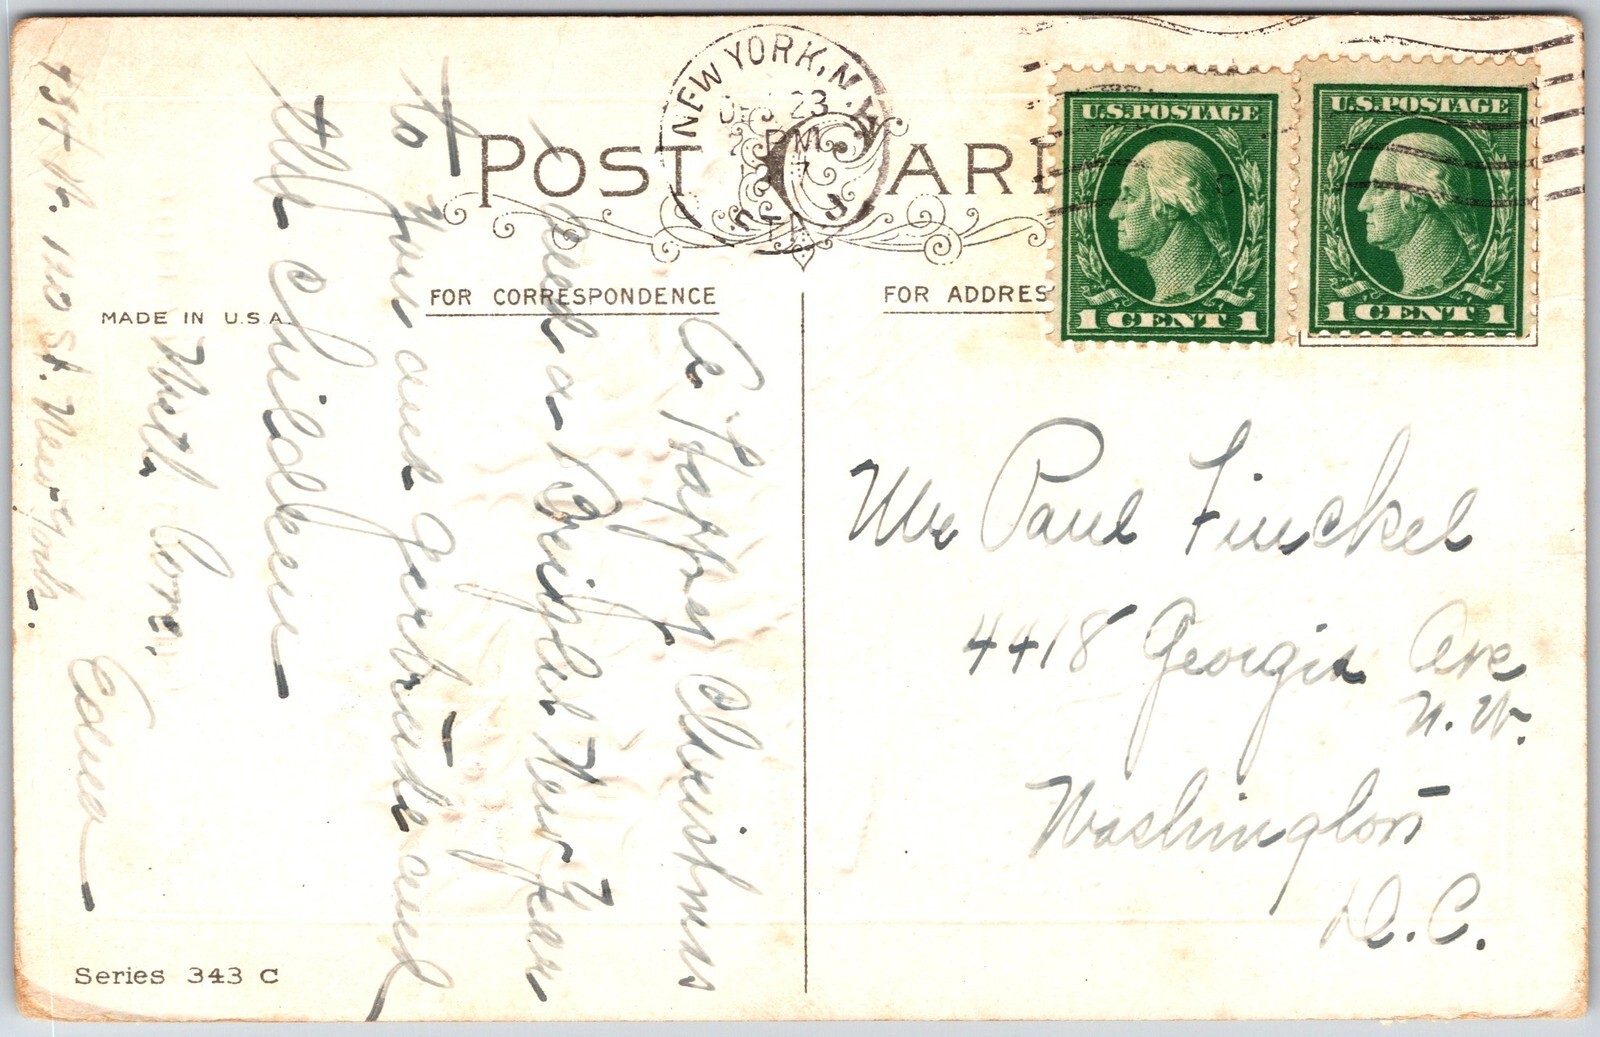 POST CARD
NEW YORK, N.Y.
DEC 23
PM
U.S. POSTAGE
1 CENT 1
U.S. POSTAGE
1 CENT 1
FOR CORRESPONDENCE
FOR ADDRES
MADE IN U.S.A.
A Happy Christmas
and a Bright New Year
to you and Gertrude and
the children
With Love,
Edna
St. New York.
Mr Paul Finckel
4418 Georgia Ave
N.W.
Washington
D.C.
Series 343 C